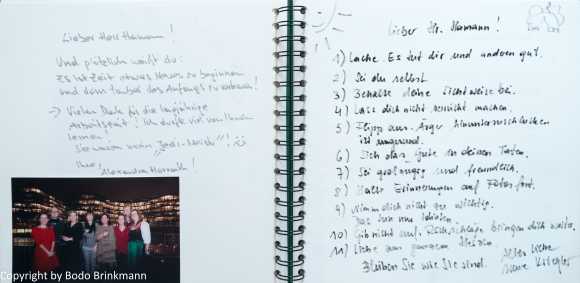 Lieber Herr Hamann!
Und plötzlich weißt du:
Es ist Zeit etwas Neues zu beginnen
und dem Zauber des Anfangs zu vertrauen!
→ Vielen Dank für die langjährige
! Ich durfte viel von Ihnen
lernen.
Sie waren mein "Jedi-Meister"!
Ihre,
Alexandra
Copyright by Bodo Brinkmann
Lieber Hr. Hamann!
1) Lache. Es tut dir und anderen gut.
2) Sei du selbst.
3) Behalte deine Sichtweise bei.
4) Lass dich nicht verrückt machen.
5) aus. Ärger hinunterschlucken
ist ungesund.
6) Sieh das Gute in deinen Taten.
7) Sei großzügig und freundlich.
8) Halte Erinnerungen auf Fotos fest.
9) Nimm dich nicht zu wichtig.
Das tun nur Idioten.
10) Gib nicht auf. Rückschläge bringen dich weiter.
11) Liebe von ganzem Herzen.
Bleiben Sie wie Sie sind.
Alles Liebe